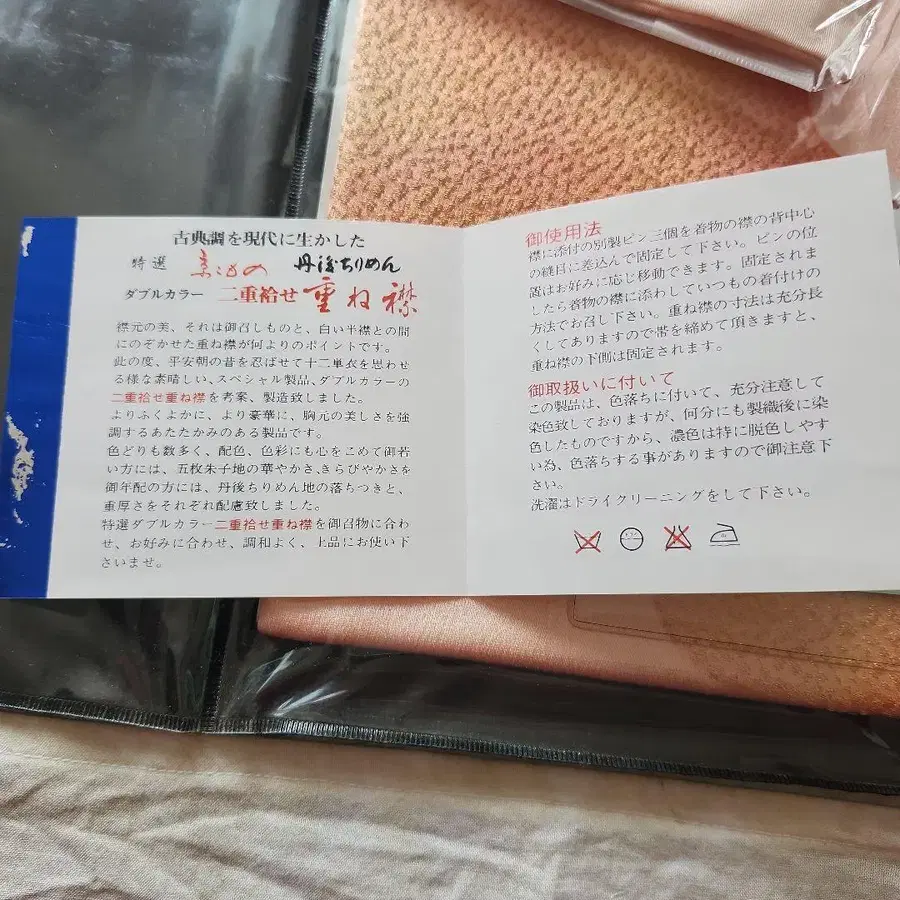 古典調を現代に生かした
特選 京こもの 丹後ちりめん
ダブルカラー 二重袷せ 重ね襟
襟元の美、それは御召しものと、白い半襟との間
にのぞかせた重ね襟が何よりのポイントです。
此の度、平安朝の昔を忍ばせて十二単衣を思わせ
る様な素晴しい、スペシャル製品、ダブルカラーの
二重袷せ重ね襟を考案、製造致しました。
よりふくよかに、より豪華に、胸元の美しさを強
調するあたたかみのある製品です。
色どりも数多く、配色、色彩にも心をこめて御若
い方には、五枚朱子地の華やかさ、きらびやかさを
御年配の方には、丹後ちりめん地の落ちつきと、
重厚さをそれぞれ配慮致しました。
特選ダブルカラー二重袷せ重ね襟を御召物に合わ
せ、お好みに合わせ、調和よく、上品にお使い下
さいませ。
御使用法
襟に添付の別製ピン三個を着物の襟の背中心
の縫目に差込んで固定して下さい。ピンの位
置はお好みに応じ移動できます。固定されま
したら着物の襟に添わしていつもの着付けの
方法でお召し下さい。重ね襟の寸法は充分長
くしてありますので帯を締めて頂きますと、
重ね襟の下側は固定されます。
御取扱いに付いて
この製品は、色落ちに付いて、充分注意して
染色致しておりますが、何分にも製織後に染
色したものですから、濃色は特に脱色しやす
い為、色落ちする事がありますので御注意下
さい。
洗濯はドライクリーニングをして下さい。